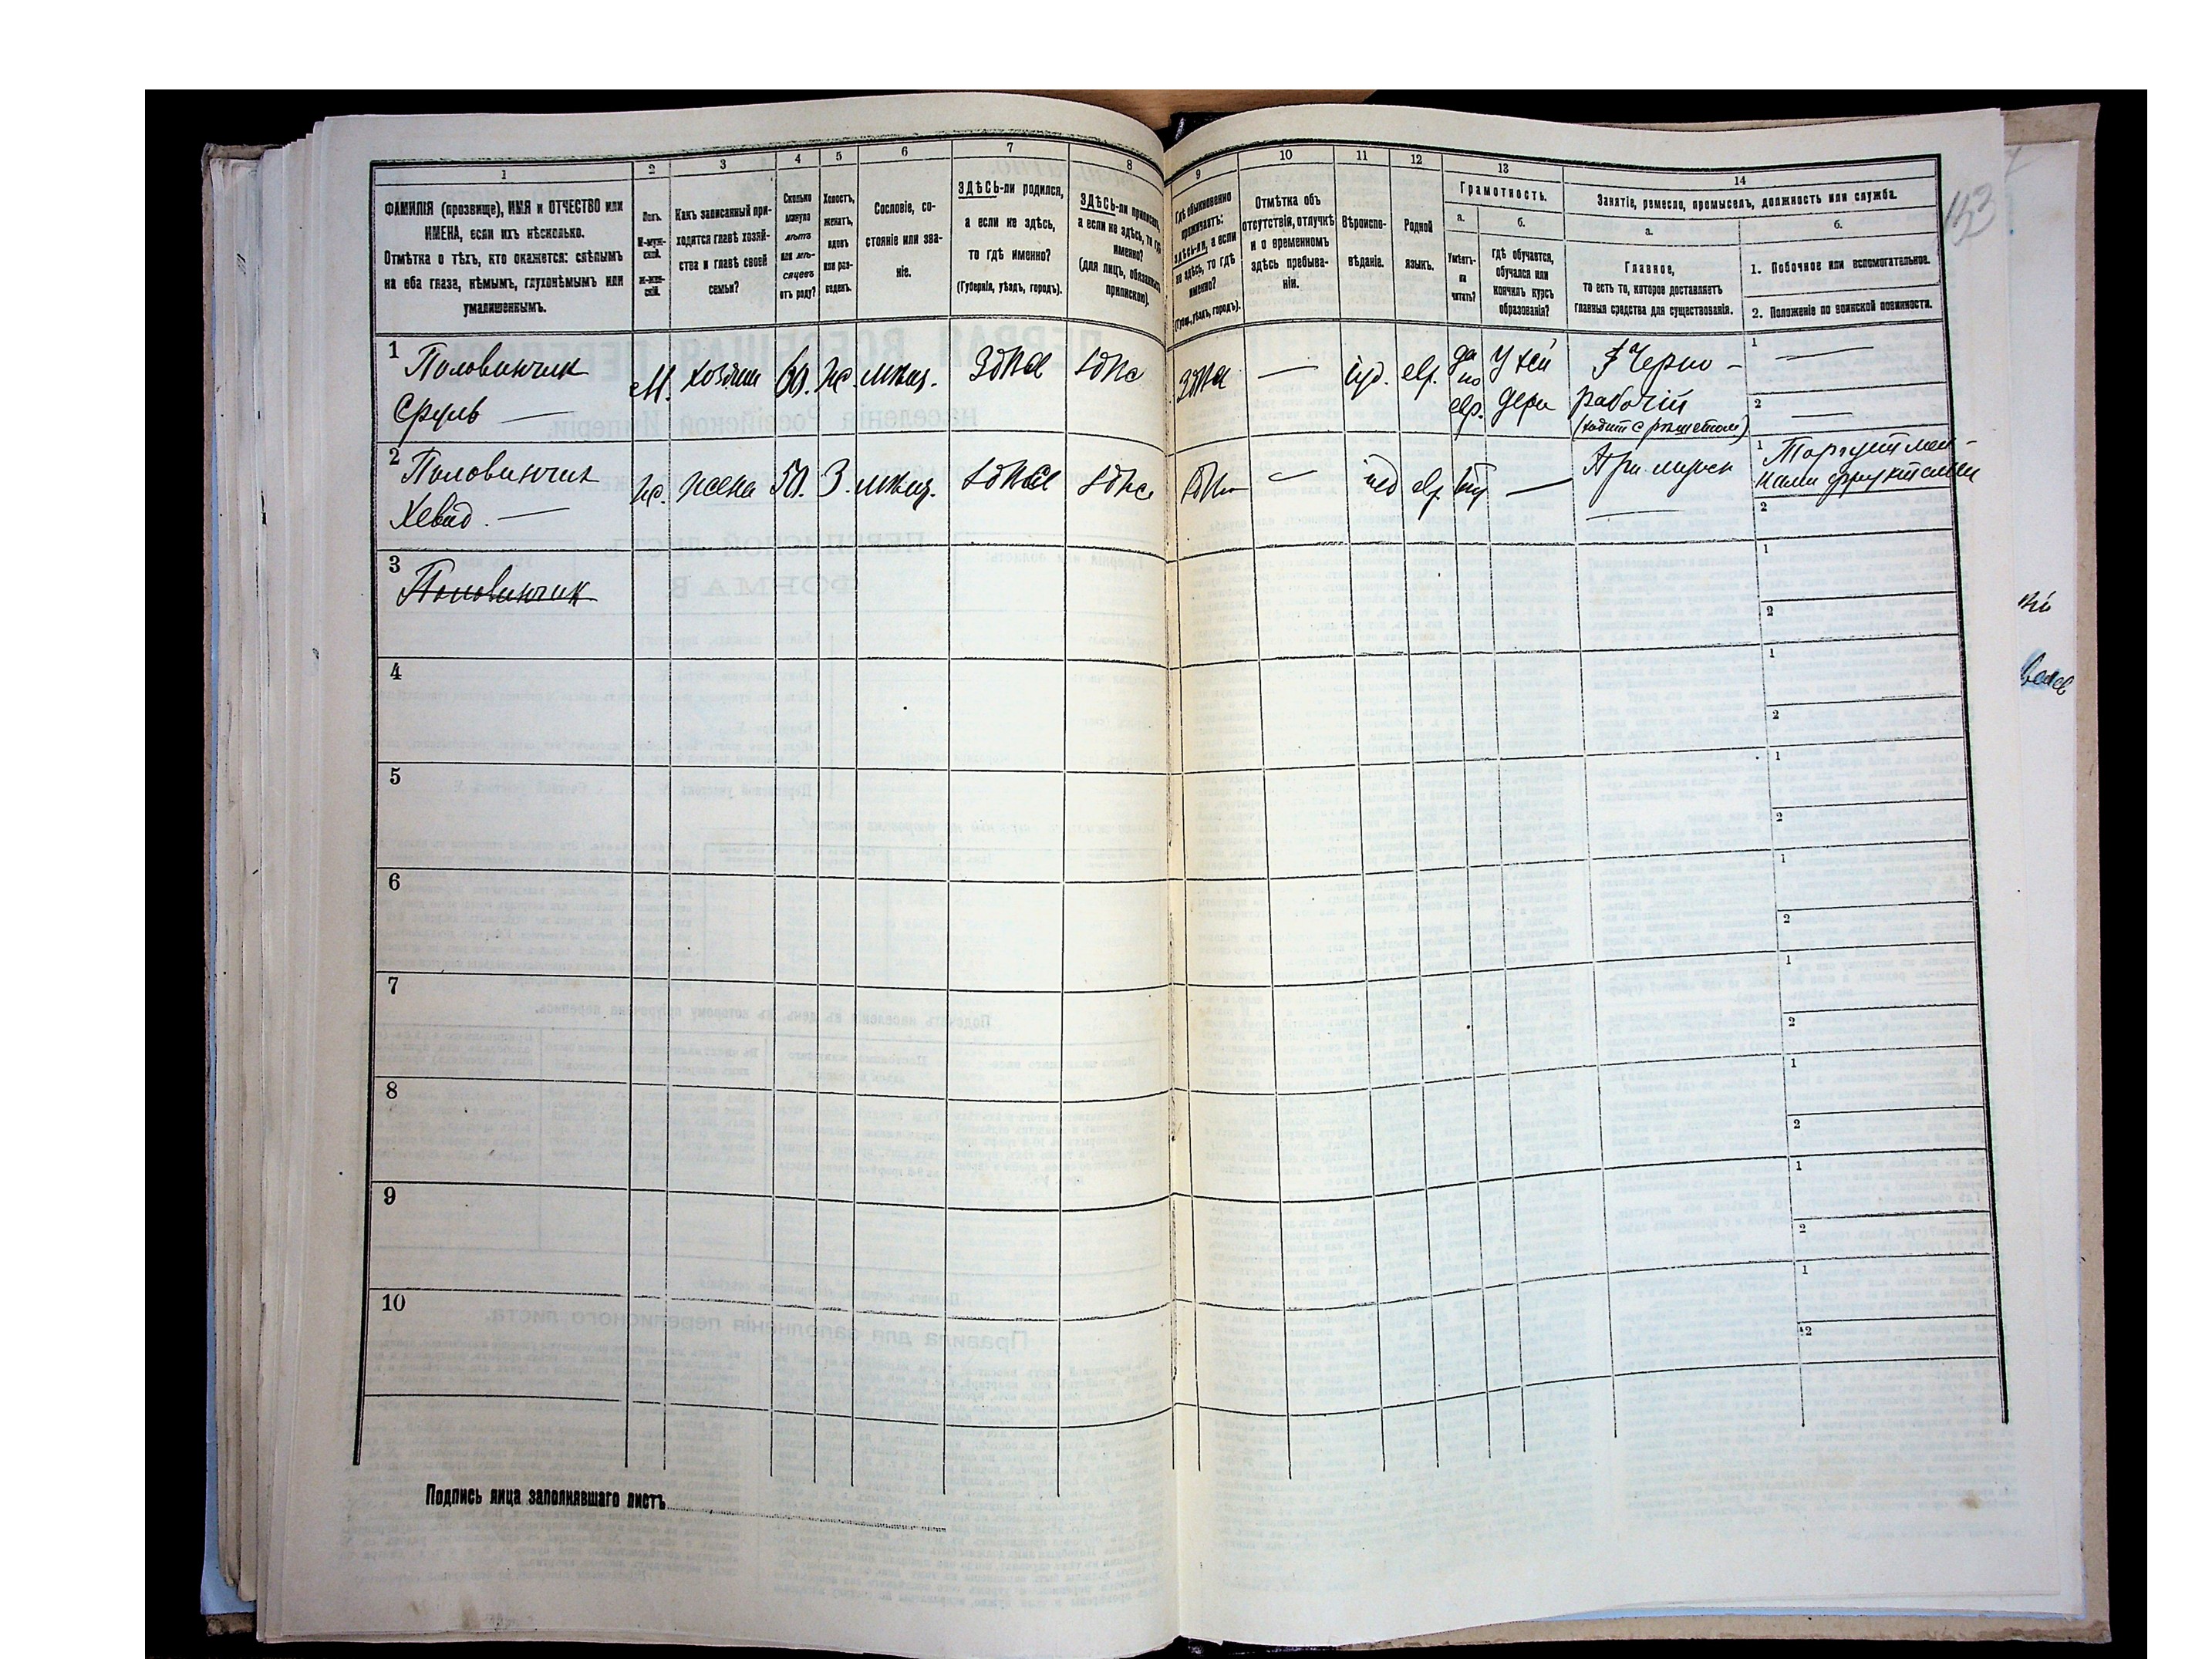 1
ФАМИЛІЯ (прозвище), ИМЯ и ОТЧЕСТВО или
ИМЕНА, если ихъ нѣсколько.
Отмѣтка о тѣхъ, кто окажется: слѣпымъ
на оба глаза, нѣмымъ, глухонѣмымъ или
умалишеннымъ.
2
Полъ.
М-муж-
ской.
Ж-жен-
скій.
3
Какъ записанный при-
ходится главѣ хозяй-
ства и главѣ своей
семьи?
4
Сколько
минуло
лѣтъ
или мѣ-
сяцевъ
отъ роду?
5
Холостъ,
женатъ,
вдовъ
или раз-
веденъ.
6
Сословіе, со-
стояніе или зва-
ніе.
7
ЗДѢСЬ-ли родился,
а если не здѣсь,
то гдѣ именно?
(Губернія, уѣздъ, городъ).
8
ЗДѢСЬ-ли приписанъ,
а если не здѣсь, то гдѣ
именно?
(для лицъ, обязанныхъ
припискою).
9
Гдѣ обыкновенно
проживаетъ:
здѣсь-ли, а если
не здѣсь, то гдѣ
именно?
(Губер., уѣздъ, городъ).
10
Отмѣтка объ
отсутствіи, отлучкѣ
и о временномъ
здѣсь пребыва-
ніи.
11
Вѣроиспо-
вѣданіе.
12
Родной
языкъ.
13
Грамотность.
а.
Умѣетъ-
ли
читать?
б.
Гдѣ обучается,
обучался или
кончилъ курсъ
образованія?
14
Занятіе, ремесло, промыселъ, должность или служба.
а.
Главное,
то есть то, которое доставляетъ
главныя средства для существованія.
б.
1. Побочное или вспомогательное.
2. Положеніе по воинской повинности.
153
1 Половинчик
Сруль —
М. хозяин 60. ж. мѣщ. Здѣсь Здѣсь Здѣсь — іуд. евр. да по евр. У хейдери
Черно-
рабочій
(ходит с решетом)
1 —
2 —
2 Половинчик
—
ж. жена 50. З. мѣщ. Здѣсь Здѣсь Здѣсь — іуд евр нѣт —
При мужѣ
1 Торгует мел-
ками фруктами
2
3 Половинчик
1
2
4
1
2
5
1
2
6
1
2
7
1
2
8
1
2
9
1
2
10
1
2
Подпись лица заполнявшаго листъ